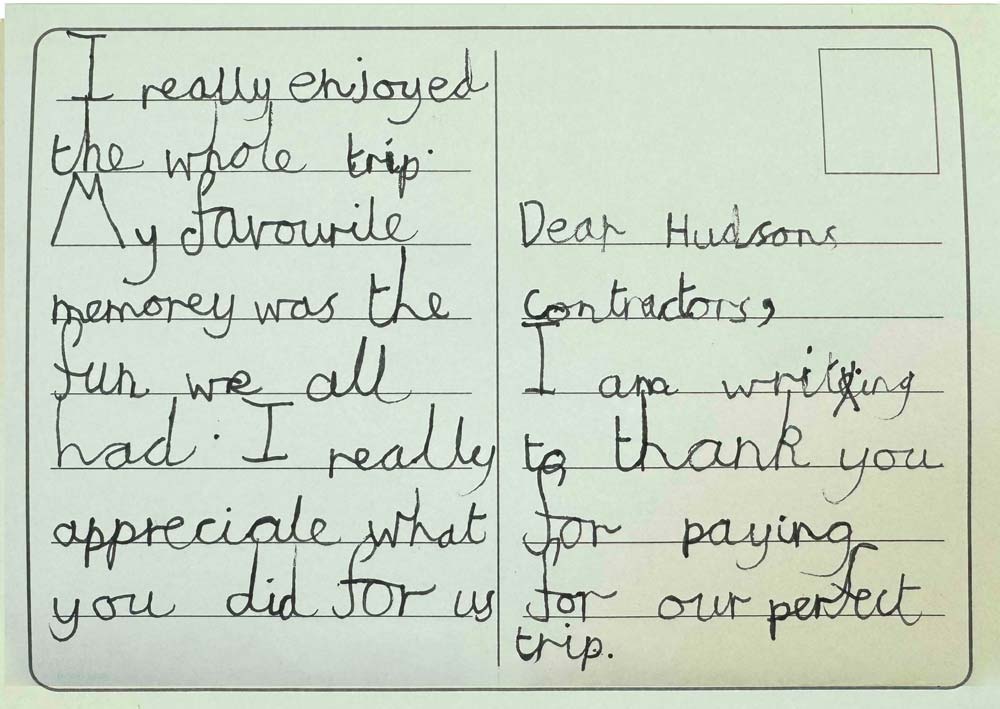 I really enjoyed
the whole trip.
My favourite
memorey was the
fun we all
had. I really
appreciate what
you did for us
Dear Hudsons
contractors,
I am writing
to thank you
for paying
for our perfect
trip.